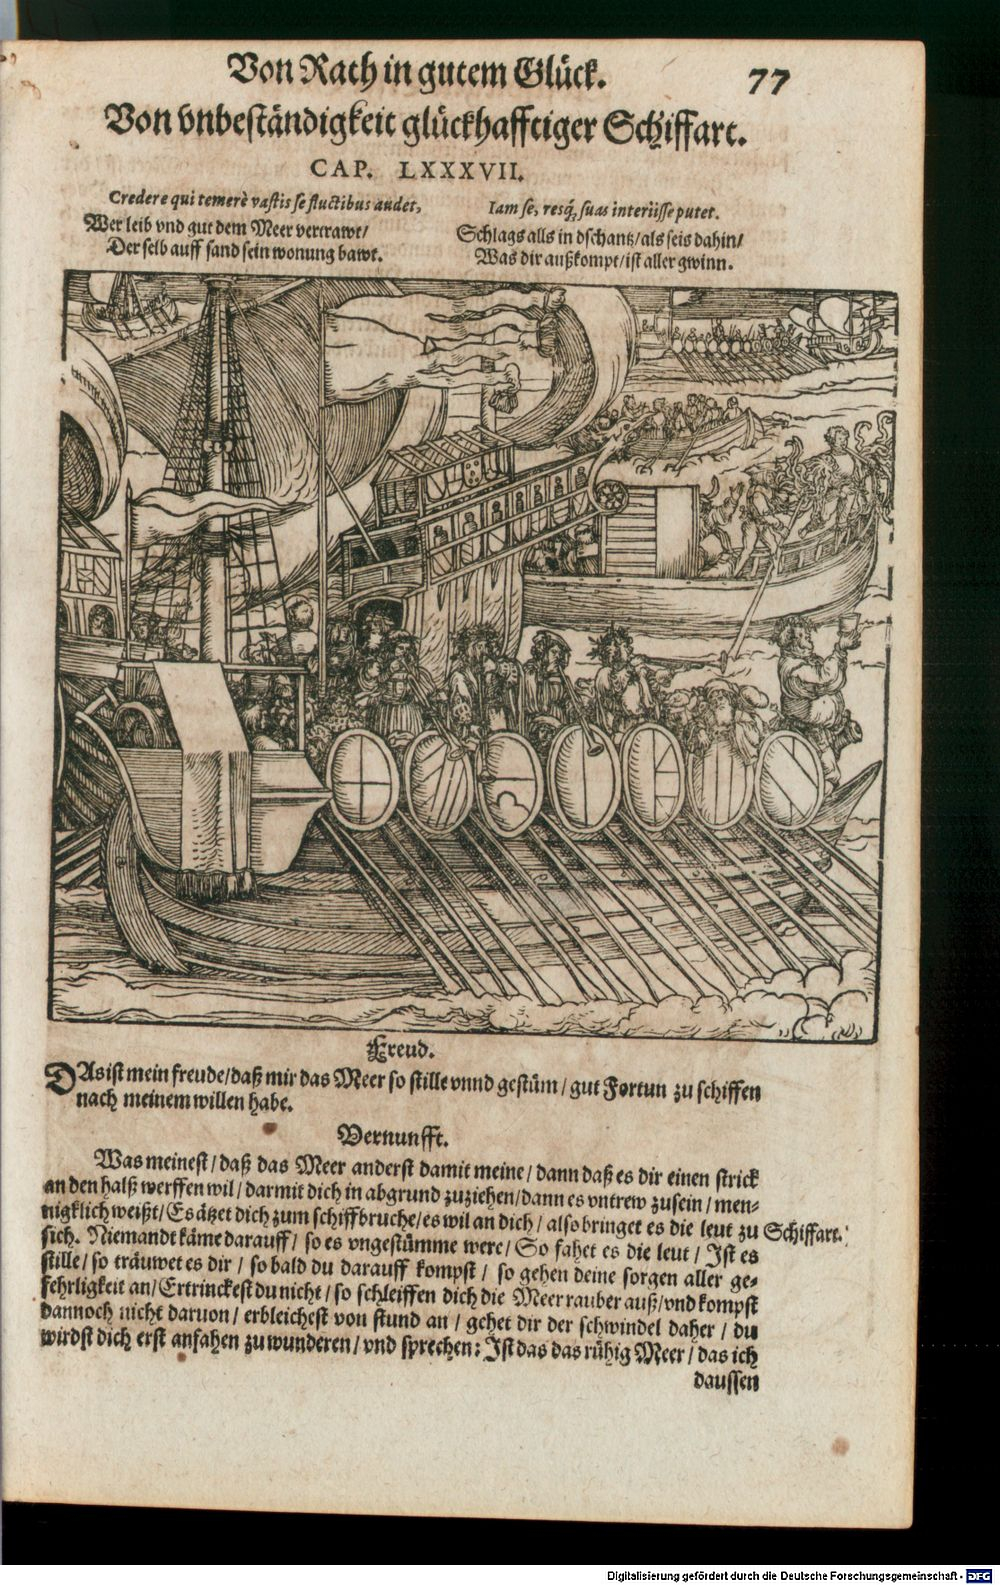 Von Rath in gutem Glück. 77
Von vnbeständigkeit glückhafftiger Schiffart.
CAP. LXXXVII.
Credere qui temerè vastis se fluctibus audet,
Wer leib vnd gut dem Meer vertrawt/
Der selb auff sand sein wonung bawt.
Iam se, resq́; suas interiisse putet.
Schlags alls in dschantz/als seis dahin/
Was dir außkompt/ist aller gwinn.
Freud.
DAs ist mein freude/daß mir das Meer so stille vnnd gestüm/gut Fortun zu schiffen
nach meinem willen habe.
Vernunfft.
Was meinest/daß das Meer anderst damit meine/dann daß es dir einen strick
an den halß werffen wil/darmit dich in abgrund zuziehen/dann es vntrew zusein/men-
nigklich weißt/Es ätzet dich zum schiffbruche/es wil an dich/also bringet es die leut zu
Schiffart.
sich. Niemandt käme darauff/so es vngestümme were/So fahet es die leut/Ist es
stille/so träuwet es dir/so bald du darauff kompst/so gehen deine sorgen aller ge-
fehrligkeit an/Ertrinckest du nicht/so schleiffen dich die Meerrauber auß/vnd kompst
dannoch nicht daruon/erbleichest von stund an/gehet dir der schwindel daher/du
wirdst dich erst anfahen zu wunderen/vnd sprechen: Ist das das rühig Meer/das ich
daussen
Digitalisierung gefördert durch die Deutsche Forschungsgemeinschaft - DFG